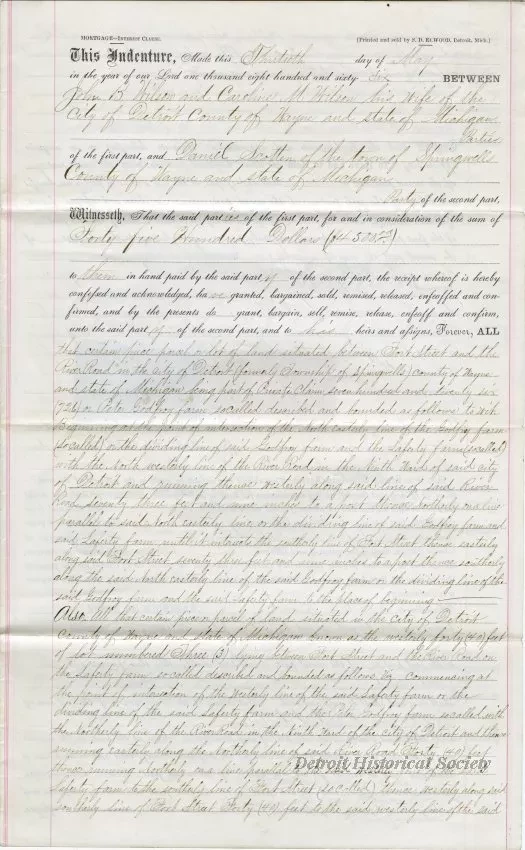 MORTGAGE—Interest Clause. [Printed and sold by S. D. ELWOOD, Detroit, Mich.]
This Indenture, Made this Thirtieth day of May
in the year of our Lord one thousand eight hundred and sixty Six BETWEEN
John B Wilson and Caroline M Wilson his wife of the
City of Detroit County of Wayne and State of Michigan
Parties
of the first part, and Daniel Scotten of the town of Springwells
County of Wayne and state of Michigan
Party of the second part,
Witnesseth, That the said parties of the first part, for and in consideration of the sum of
Forty five Hundred Dollars
to them in hand paid by the said party of the second part, the receipt whereof is hereby
confessed and acknowledged, have granted, bargained, sold, remised, released, enfeoffed and con-
firmed, and by the presents do grant, bargain, sell, remise, release, enfeoff and confirm,
unto the said party of the second part, and to his heirs and assigns, Forever, ALL
that certain piece parcel or lot of land situated between Fort Street and the
River Road in the city of Detroit (formerly Township of Springwells) County of Wayne
and state of Michigan being part of Private Claim seven hundred and twenty six
(726) or Peter Godfroy farm so called described and bounded as follows to wit
Beginning at the point of intersection of the North easterly line of the Godfroy farm
(so called) or the dividing line of said Godfroy farm and the Laferty farm (so called)
with the North westerly line of the River Road in the Ninth Ward of said city
of Detroit and running thence westerly along said line of said River
Road seventy three feet and nine inches to a post thence Northerly on a line
parallel to said north easterly line or the dividing line of said Godfroy farm and
said Laferty farm until it intersects the southerly line of Fort Street thence easterly
along said Fort Street seventy three feet and nine inches to a post thence southerly
along the said north easterly line of the said Godfroy farm or the dividing line of the
said Godfroy farm and the said Laferty farm to the place of beginning
Also, All that certain piece or parcel of land situated in the city of Detroit
County of Wayne and state of Michigan known as the westerly forty (40) feet
of lot numbered Three (3) lying between Fort Street and the River Road on
the Laferty farm so called described and bounded as follows by commencing at
the point of intersection of the westerly line of the said Laferty farm or the
dividing line of the said Laferty farm and the Peter Godfroy farm so called with
the Northerly line of the River Road in the Ninth Ward of the city of Detroit and thence
running easterly along the Northerly line of said River Road Forty (40) feet
thence running Northerly on a line parallel to the said westerly line of the said
Laferty farm to the southerly line of Fort Street (so called) thence westerly along said
southerly line of Fort Street Forty (40) feet to the said westerly line of the said
Detroit Historical Society